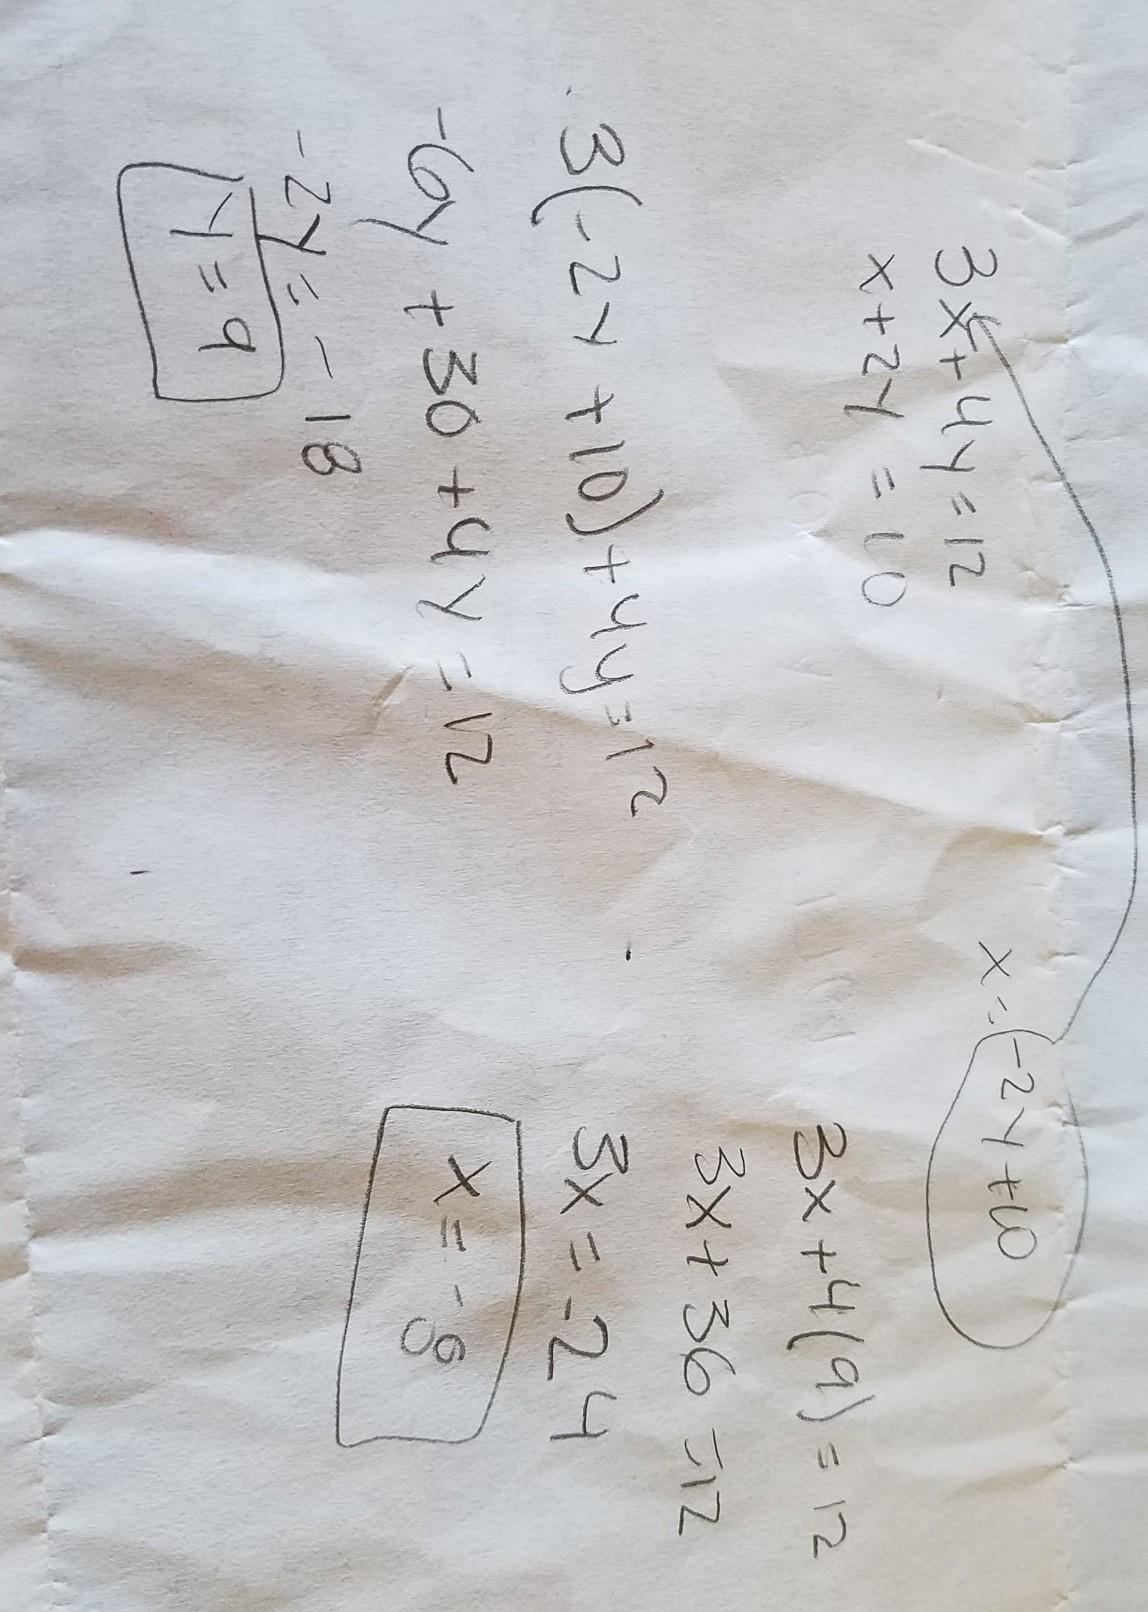 3x+4y=12
x+2y=10
x=(-2y+10
3(-2y+10)+4y=12
-6y+30+4y=12
-2y=-18
y=9
3x+4(9)=12
3x+36=12
3x=-24
x=-8